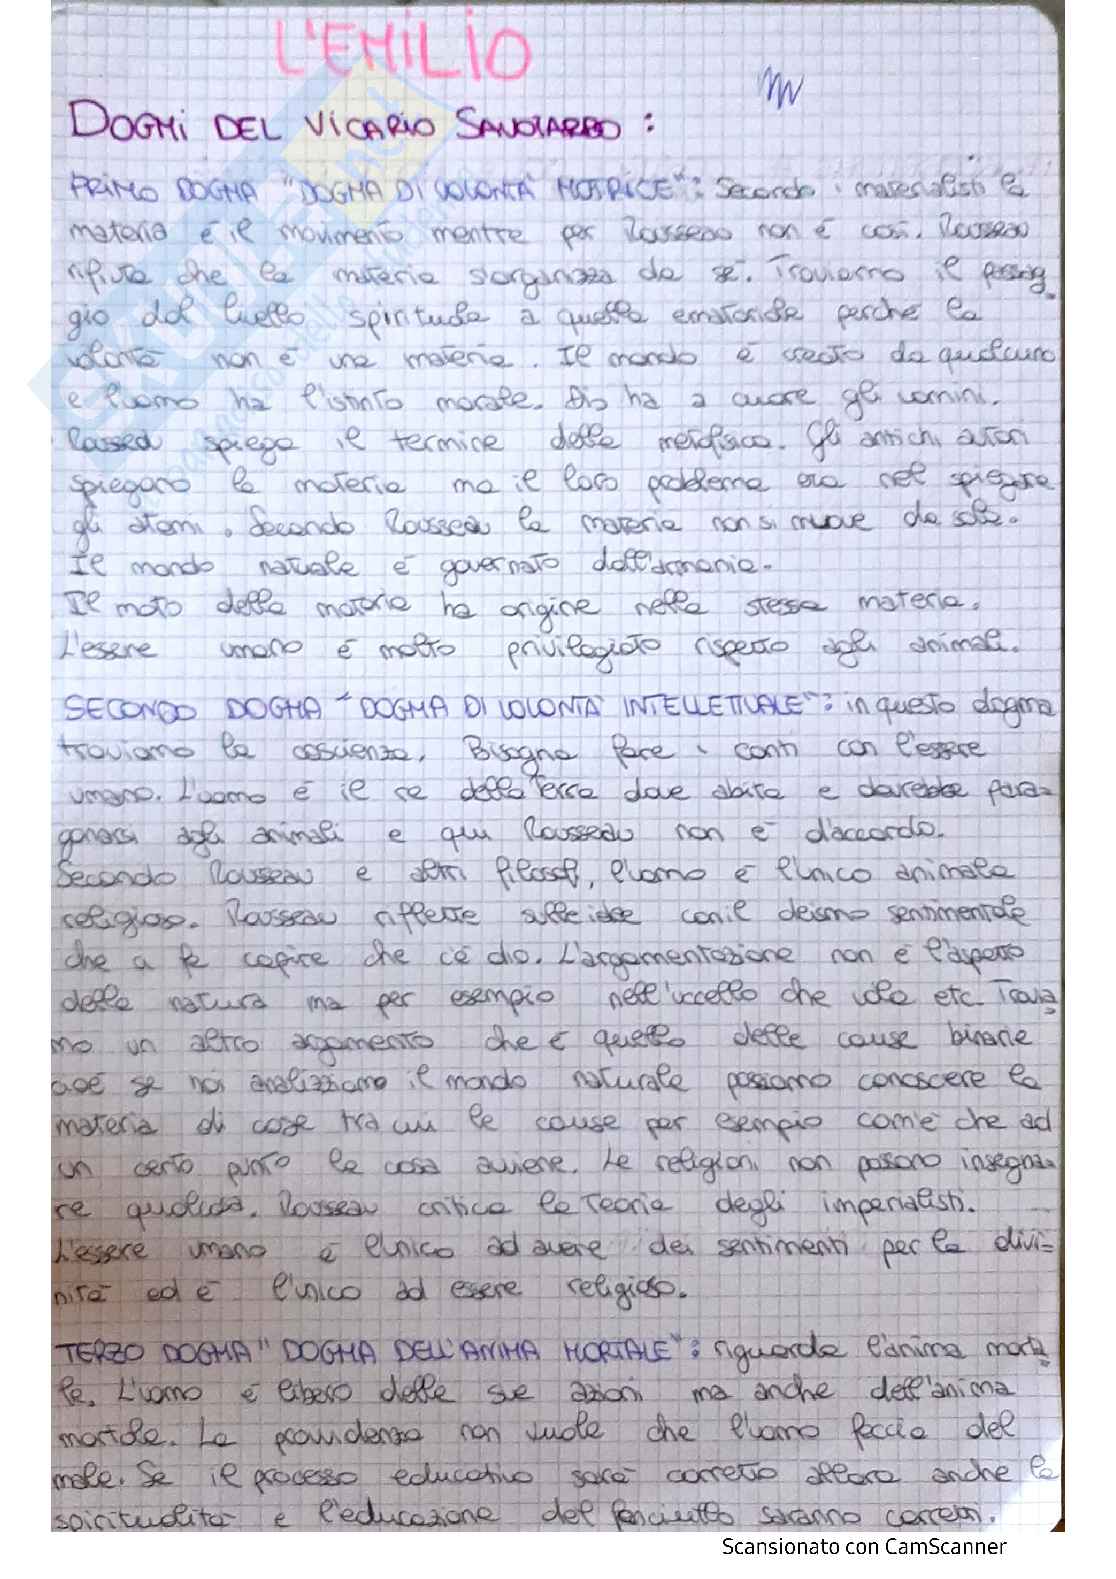 L'EMILIO
DOGMI DEL VICARIO SAVOIARDO:
PRIMO DOGMA "DOGMA DI VOLONTÀ MOTRICE": Secondo i materialisti la
materia è il movimento mentre per Rousseau non è così. Rousseau
rifiuta che la materia s'organizza da sé. Troviamo il passag-
gio dal livello spirituale a quella perché la
volontà non è una materia. Il mondo è creato da qualcuno
e l'uomo ha l'istinto morale. Dio ha a cuore gli uomini.
Rousseau spiega il termine della metafisica. Gli antichi autori
spiegano la materia ma il loro problema era nel spiegare
gli atomi. Secondo Rousseau la materia non si muove da sola.
Il mondo naturale è governato dall'armonia.
Il moto della materia ha origine nella stessa materia.
L'essere umano è molto privilegiato rispetto agli animali.
SECONDO DOGMA "DOGMA DI VOLONTÀ INTELLETTUALE": in questo dogma
troviamo la coscienza. Bisogna fare i conti con l'essere
umano. L'uomo è il re della Terra dove abita e dovrebbe para-
gonarsi agli animali e qui Rousseau non è d'accordo.
Secondo Rousseau e altri filosofi, l'uomo è l'unico animale
religioso. Rousseau riflette sulle idee con il deismo sentimentale
che a fa capire che c'è dio. L'argomentazione non è l'aspetto
della natura ma per esempio nell'uccello che vola etc. Trovia-
mo un altro argomento che è quello delle cause binarie
cioè se noi analizziamo il mondo naturale possiamo conoscere la
materia di cose tra cui le cause per esempio com'è che ad
un certo punto la cosa avviene. Le religioni non possono insegna-
re qualcosa. Rousseau critica la Teoria degli imperialisti.
L'essere umano è l'unico ad avere dei sentimenti per la divi-
nità ed è l'unico ad essere religioso.
TERZO DOGMA "DOGMA DELL'ANIMA MORTALE": riguarda l'anima morta-
le. L'uomo è libero delle sue azioni ma anche dell'anima
mortale. La provvidenza non vuole che l'uomo faccia del
male. Se il processo educativo sarà corretto allora anche la
spiritualità e l'educazione del fanciullo saranno corretti.
Scansionato con CamScanner